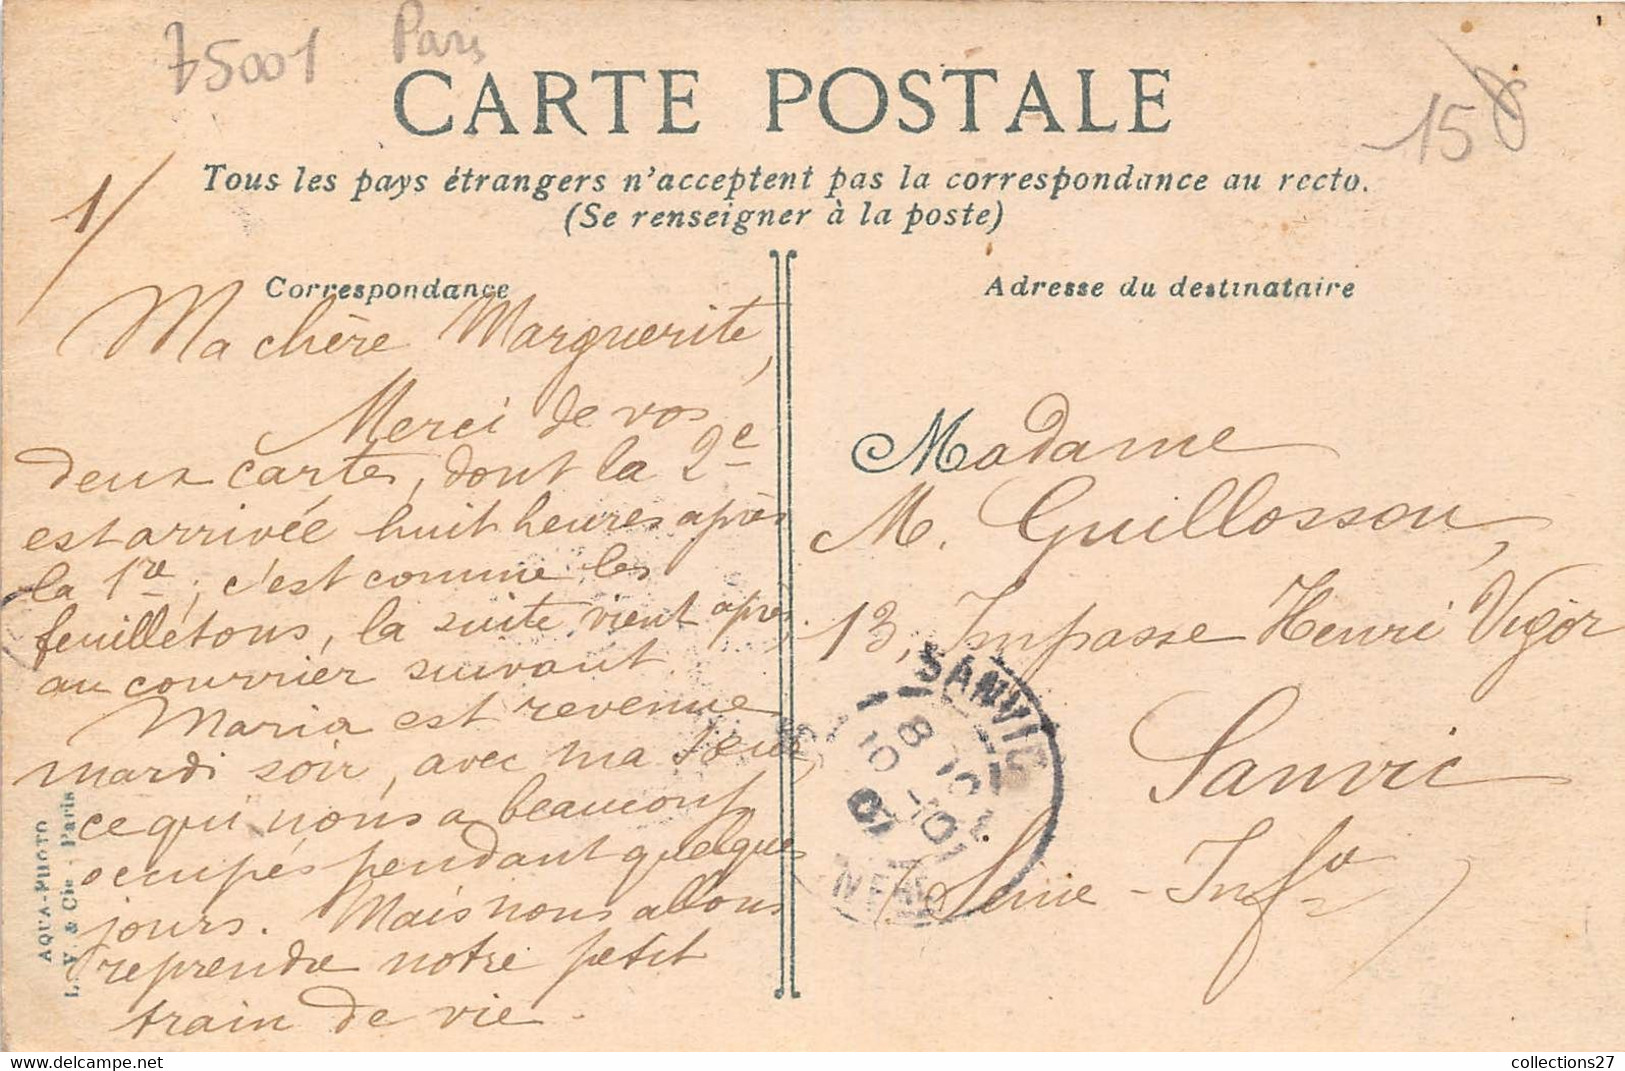 75001 Paris
CARTE POSTALE
15
Tous les pays étrangers n'acceptent pas la correspondance au recto.
(Se renseigner à la poste)
1/
Correspondance
Ma chère Marguerite,
Merci de vos
deux cartes, dont la 2e
est arrivée huit heures après
la 1re; c'est comme les
feuilletons, la suite vient après
au courrier suivant
Maria est revenue
mardi soir, avec ma sœur
ce qui nous a beaucoup
occupés pendant quelques
jours. Mais nous allons
reprendre notre petit
train de vie.
AQUA-PHOTO
L. V. & Cie - Paris
Adresse du destinataire
Madame
M. Guillosson,
13, Impasse Henri Vigor
Sanvic
(Seine-Infre)
SANVIC
collections27